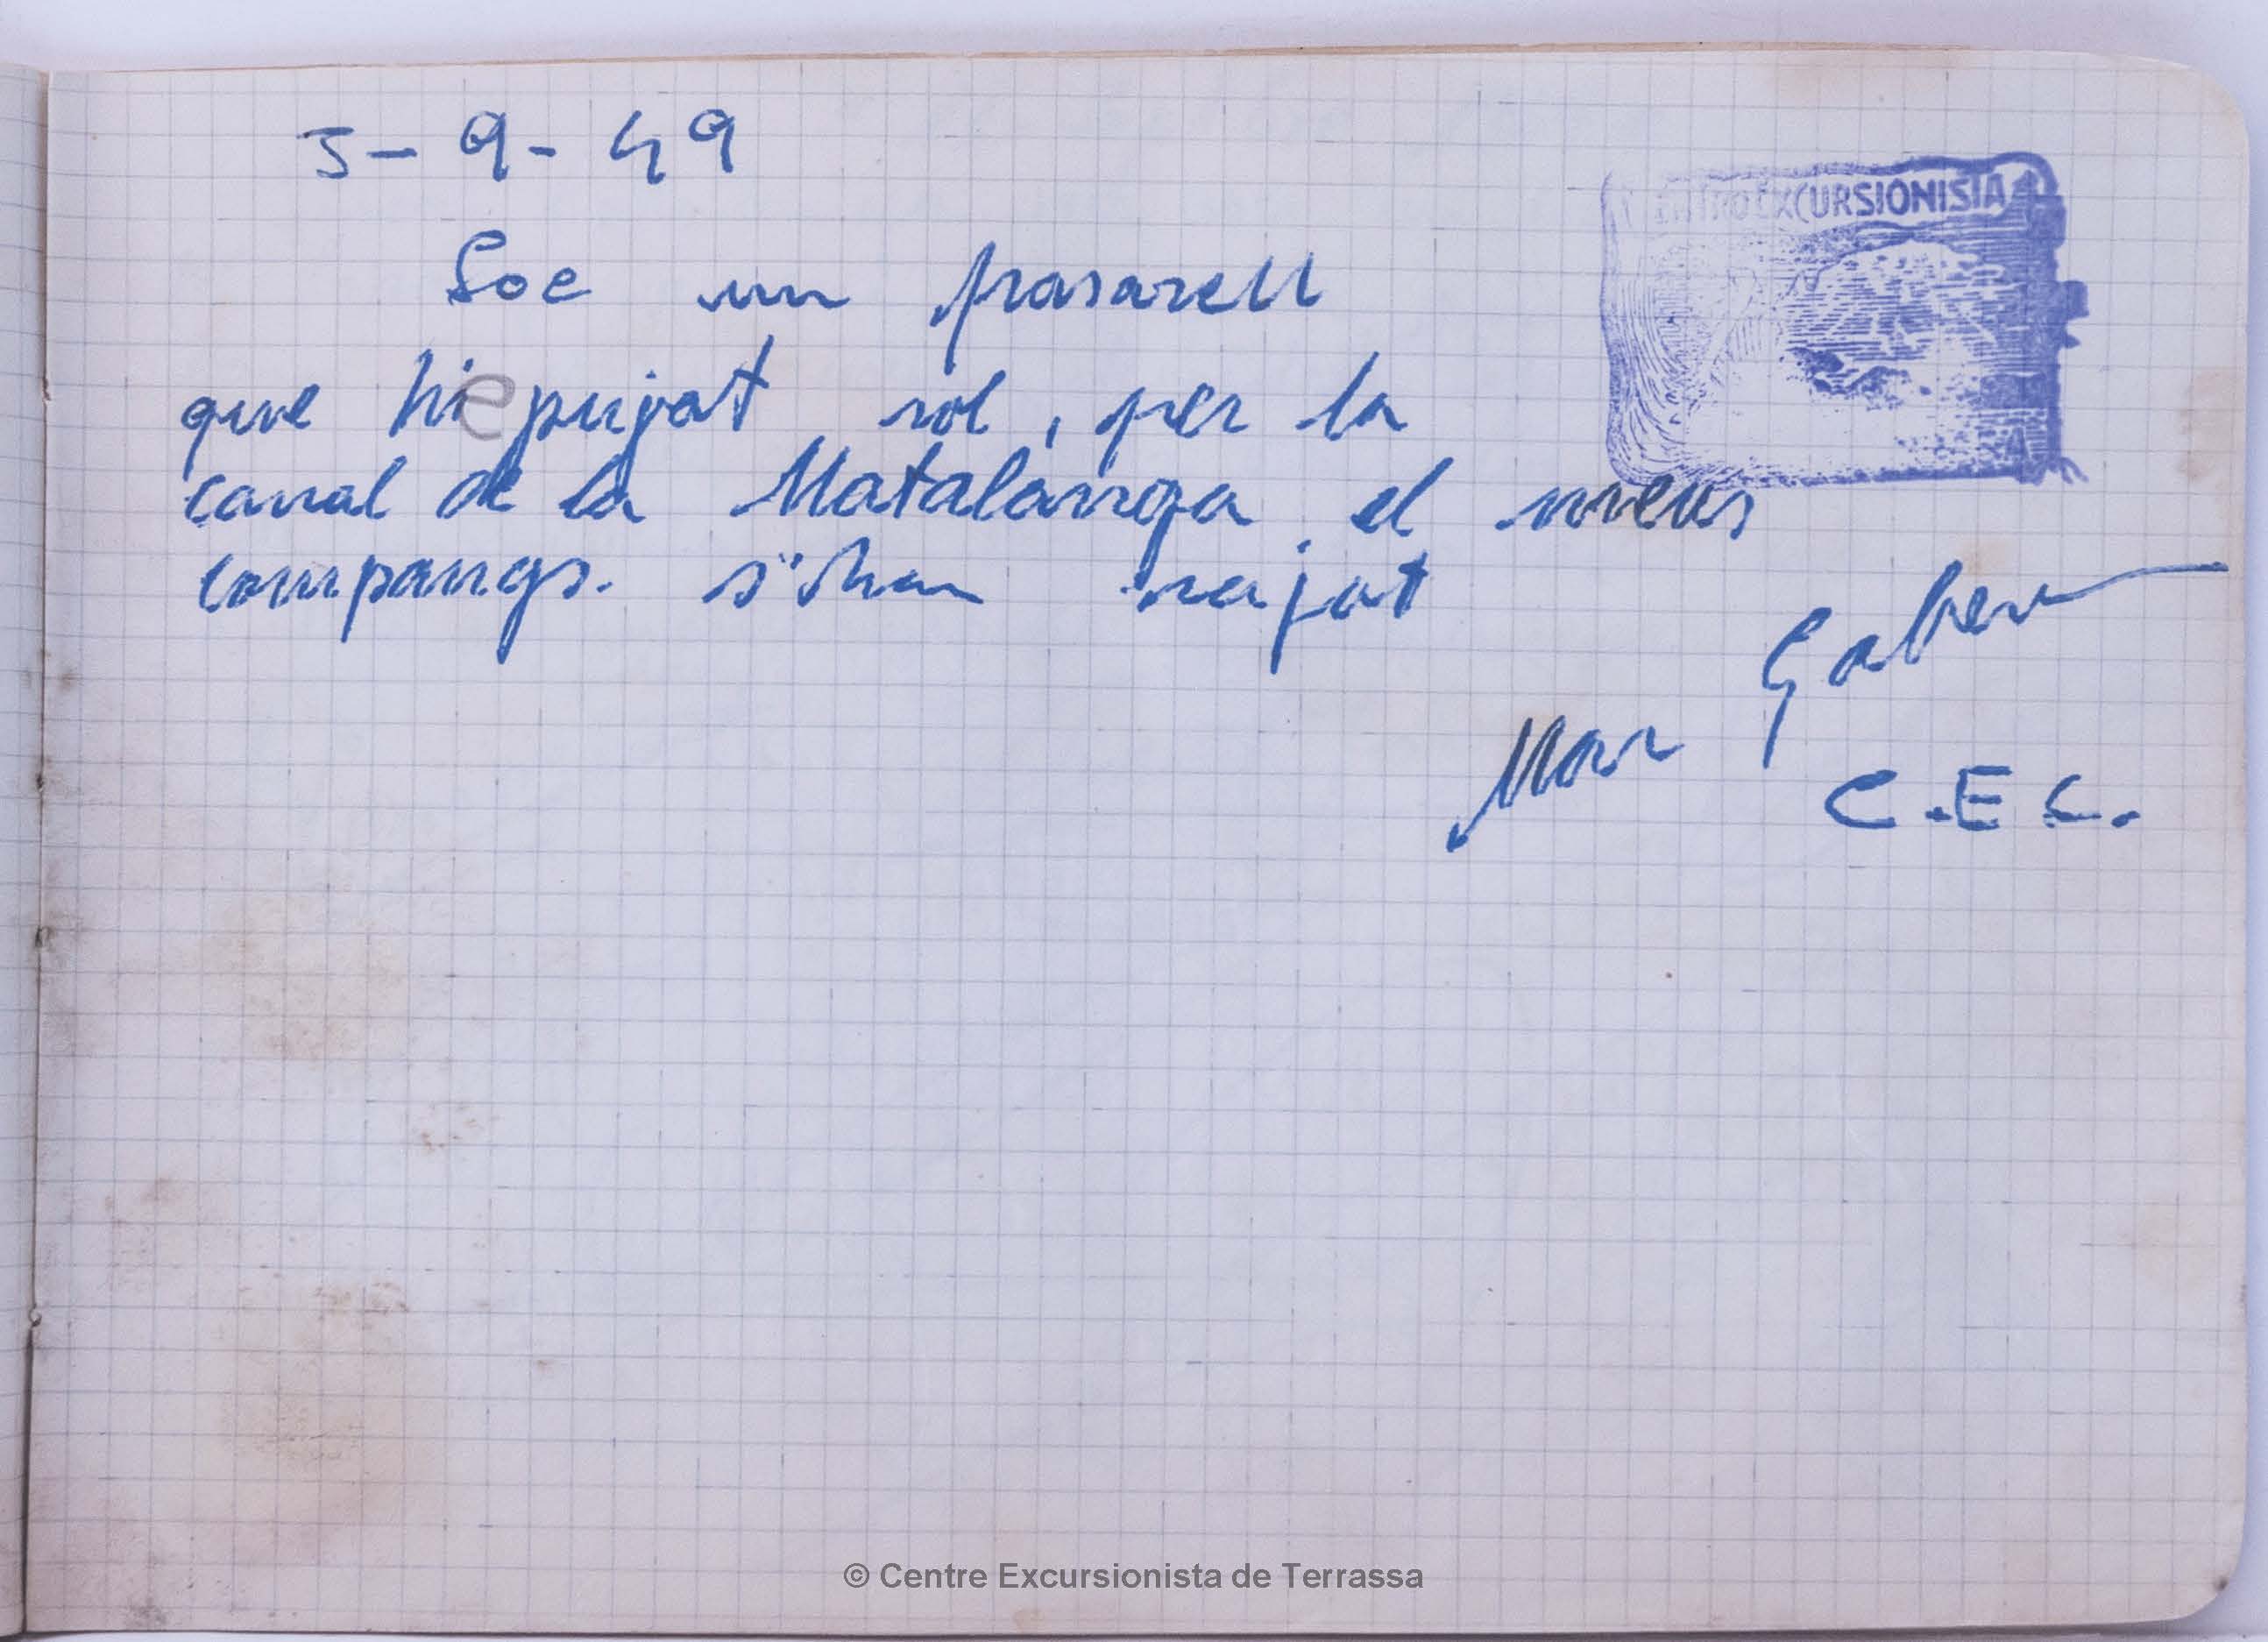 5-9-49
CENTRO EXCURSIONISTA
Soc un pasarell
que hi e pujat sol, per la
canal de la Matalonga, el meus
companys. s'han rajat
Gaber
Mar
C.E.C.
© Centre Excursionista de Terrassa